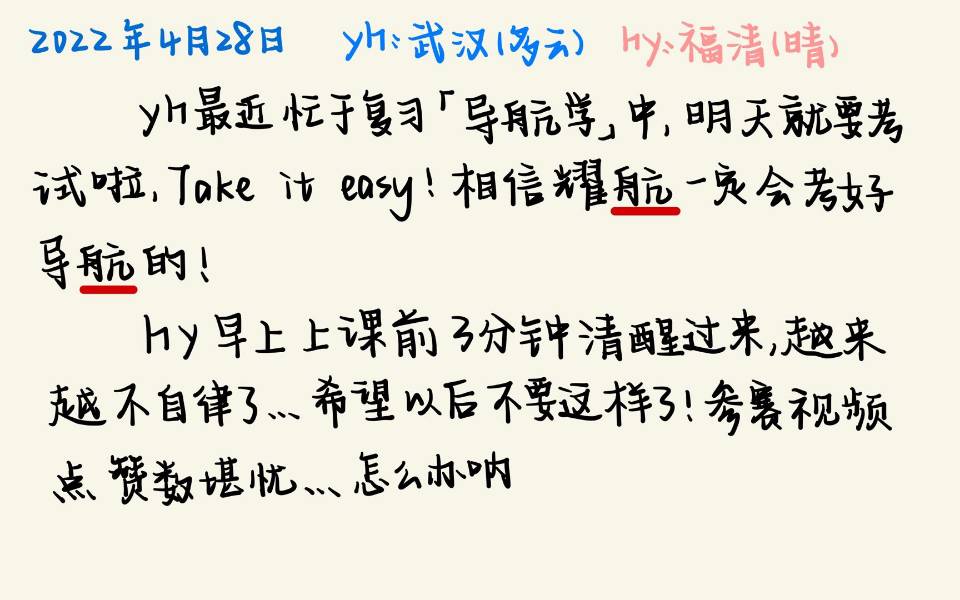 2022年4月28日 yh:武汉(多云) hy:福清(晴)
yh最近忙于复习「导航学」中,明天就要考
试啦,Take it easy!相信耀航一定会考好
导航的!
hy早上上课前3分钟清醒过来,越来
越不自律了...希望以后不要这样了!参赛视频
点赞数堪忧...怎么办呐